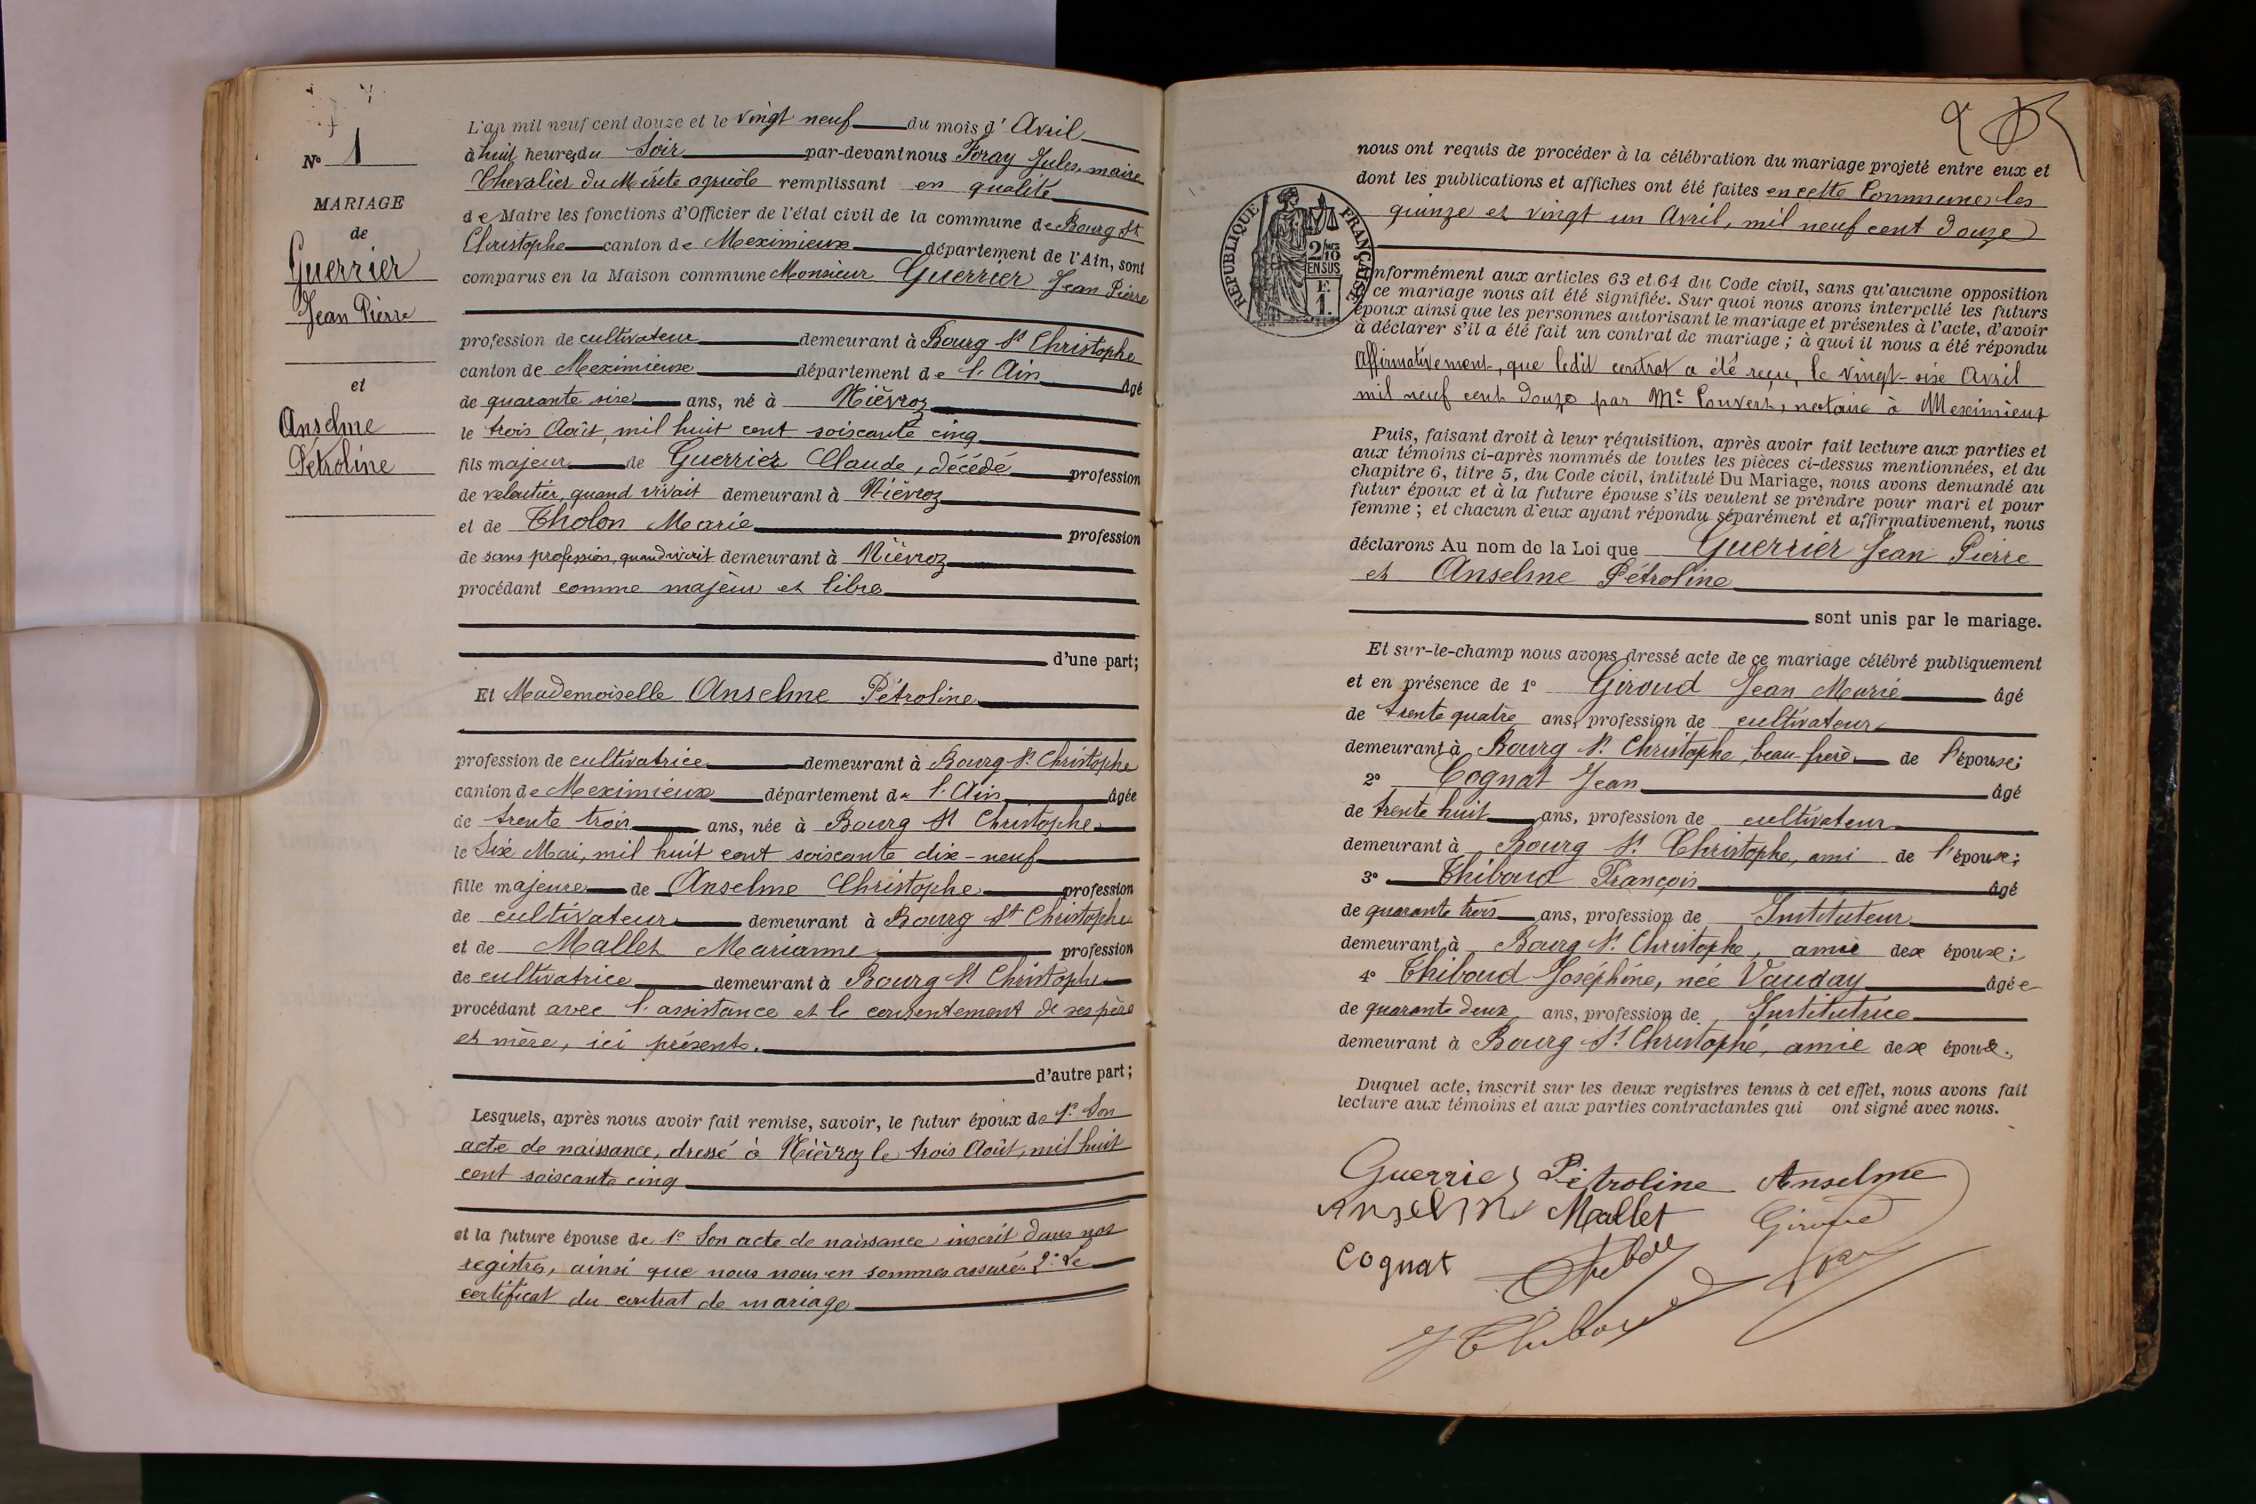 N° 1
MARIAGE
de
Guerrier
Jean Pierre
et
Anselme
Pétroline
L'an mil neuf cent douze et le vingt neuf du mois d'Avril
à huit heures du Soir par-devant nous Foray Jules, maire
Chevalier du Mérite agricole remplissant en qualité
de Maire les fonctions d'Officier de l'état civil de la commune de Bourg St
Christophe canton de Meximieux département de l'Ain, sont
comparus en la Maison commune Monsieur Guerrier Jean Pierre
profession de cultivateur demeurant à Bourg St Christophe
canton de Meximieux département de l'Ain âgé
de quarante six ans, né à Niévroz
le trois Août, mil huit cent soixante cinq
fils majeur de Guerrier Claude, décédé profession
de veloutier, quand vivait demeurant à Niévroz
et de Tholon Marie profession
de sans profession, quand vivait demeurant à Niévroz
procédant comme majeur et libre
d'une part;
Et Mademoiselle Anselme Pétroline
profession de cultivatrice demeurant à Bourg St Christophe
canton de Meximieux département de l'Ain âgée
de trente trois ans, née à Bourg St Christophe
le Six Mai, mil huit cent soixante dix-neuf
fille majeure de Anselme Christophe profession
de cultivateur demeurant à Bourg St Christophe
et de Mallet Marianne profession
de cultivatrice demeurant à Bourg St Christophe
procédant avec l'assistance et le consentement de ses père
et mère, ici présents.
d'autre part;
Lesquels, après nous avoir fait remise, savoir, le futur époux de 1° Son
acte de naissance, dressé à Niévroz le trois Août, mil huit
cent soixante cinq
et la future épouse de 1° Son acte de naissance inscrit dans nos
registres, ainsi que nous nous en sommes assuré. 2° Le
certificat du contrat de mariage
nous ont requis de procéder à la célébration du mariage projeté entre eux et
dont les publications et affiches ont été faites en cette Commune les
quinze et vingt un Avril, mil neuf cent douze
RÉPUBLIQUE FRANÇAISE
2/10
EN SUS
F.
1.
nformément aux articles 63 et 64 du Code civil, sans qu'aucune opposition
ce mariage nous ait été signifiée. Sur quoi nous avons interpellé les futurs
époux ainsi que les personnes autorisant le mariage et présentes à l'acte, d'avoir
à déclarer s'il a été fait un contrat de mariage; à quoi il nous a été répondu
Affirmativement, que ledit contrat a été reçu, le vingt-six Avril
mil neuf cent douze par Me Convert, notaire à Meximieux
Puis, faisant droit à leur réquisition, après avoir fait lecture aux parties et
aux témoins ci-après nommés de toutes les pièces ci-dessus mentionnées, et du
chapitre 6, titre 5, du Code civil, intitulé Du Mariage, nous avons demandé au
futur époux et à la future épouse s'ils veulent se prendre pour mari et pour
femme; et chacun d'eux ayant répondu séparément et affirmativement, nous
déclarons Au nom de la Loi que Guerrier Jean Pierre
et Anselme Pétroline
sont unis par le mariage.
Et sur-le-champ nous avons dressé acte de ce mariage célébré publiquement
et en présence de 1° Giroud Jean Marie âgé
de trente quatre ans, profession de cultivateur
demeurant à Bourg St Christophe, beau-frère de l'épouse;
2° Cognat Jean âgé
de trente huit ans, profession de cultivateur
demeurant à Bourg St Christophe, ami de l'épouse;
3° Thiboud François âgé
de quarante trois ans, profession de Instituteur
demeurant à Bourg St Christophe, ami dex époux;
4° Thiboud Joséphine, née Vauday âgée
de quarante deux ans, profession de Institutrice
demeurant à Bourg St Christophe, amie dex époux.
Duquel acte, inscrit sur les deux registres tenus à cet effet, nous avons fait
lecture aux témoins et aux parties contractantes qui ont signé avec nous.
Guerrier Pétroline Anselme
Anselme Mallet Giroud
Cognat Thiboud
J Thiboud